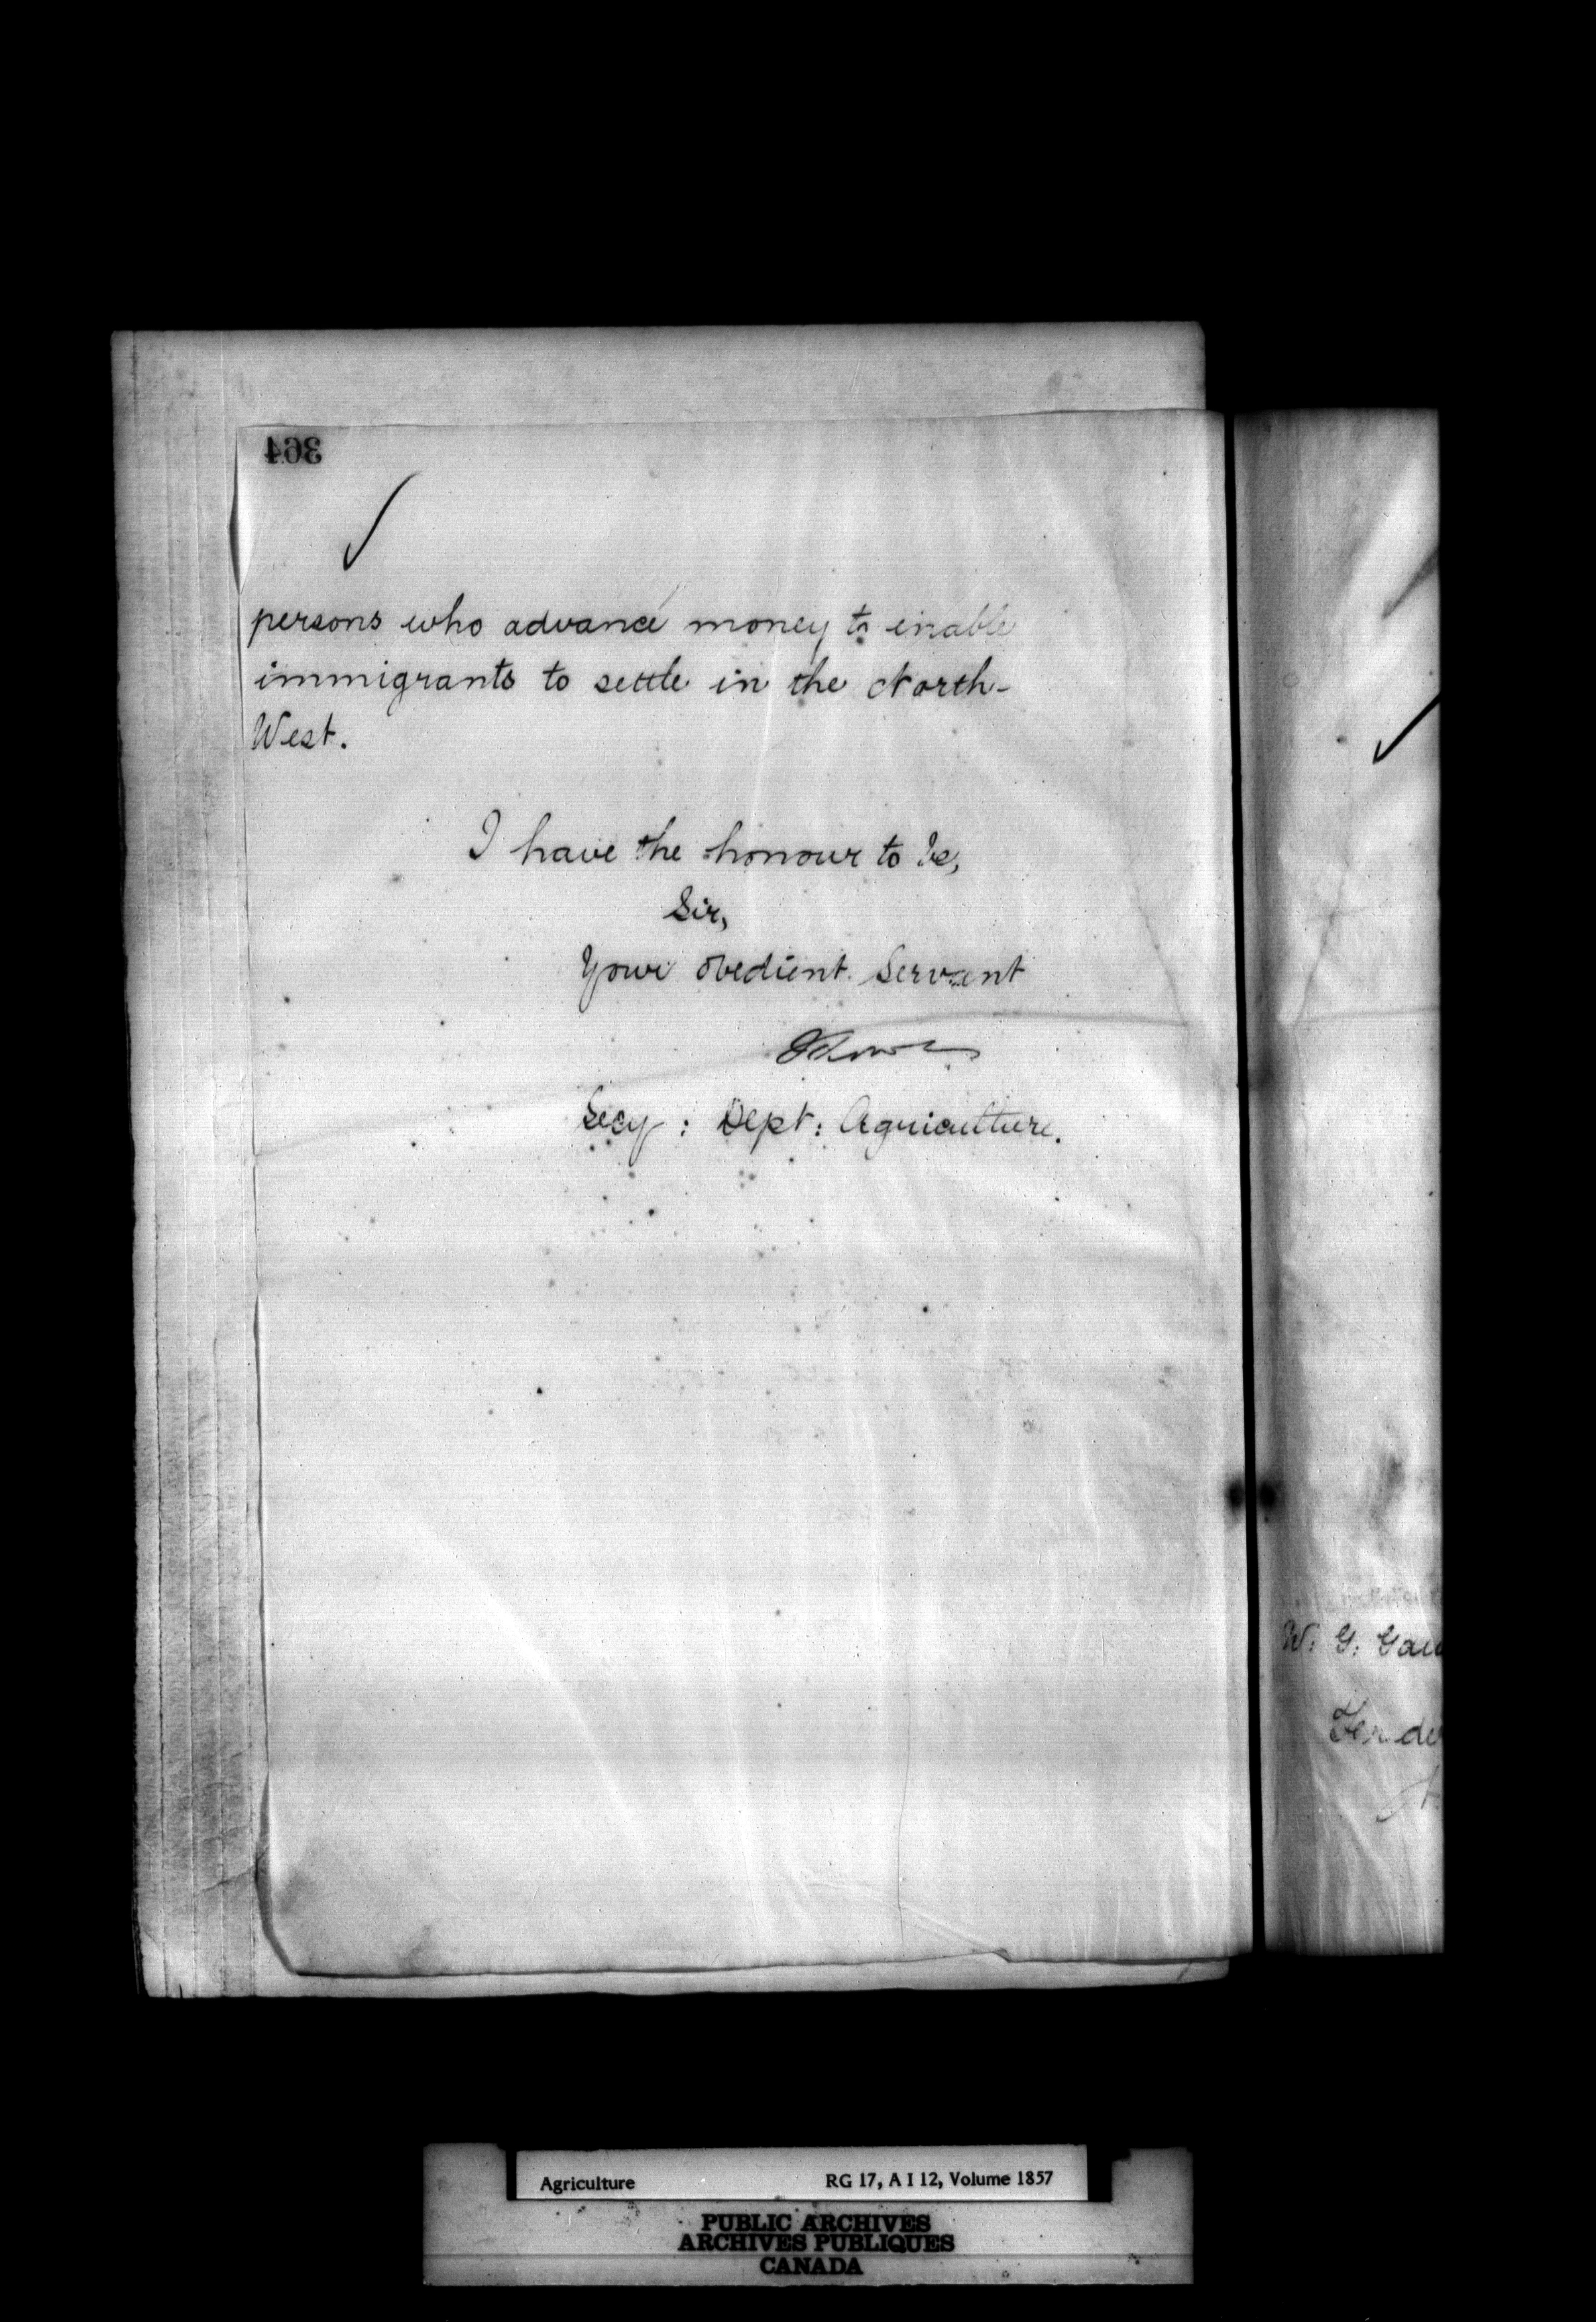 364
persons who advance money to enable
immigrants to settle in the North-
West.
I have the honour to be,
Sir,
Your obedient Servant
J Lowe
Secy: Dept: Agriculture.
W: G:
Agriculture RG 17, A I 12, Volume 1857
PUBLIC ARCHIVES
ARCHIVES PUBLIQUES
CANADA